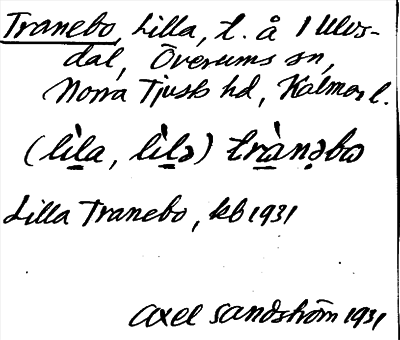 Tranebo, Lilla, t. å 1 Ulvs-
dal, Överums sn,
Norra Tjusts hd, Kalmar l.
(lìla, lìlə) trànəbω
Lilla Tranebo, kb 1931
Axel Sandström 1931